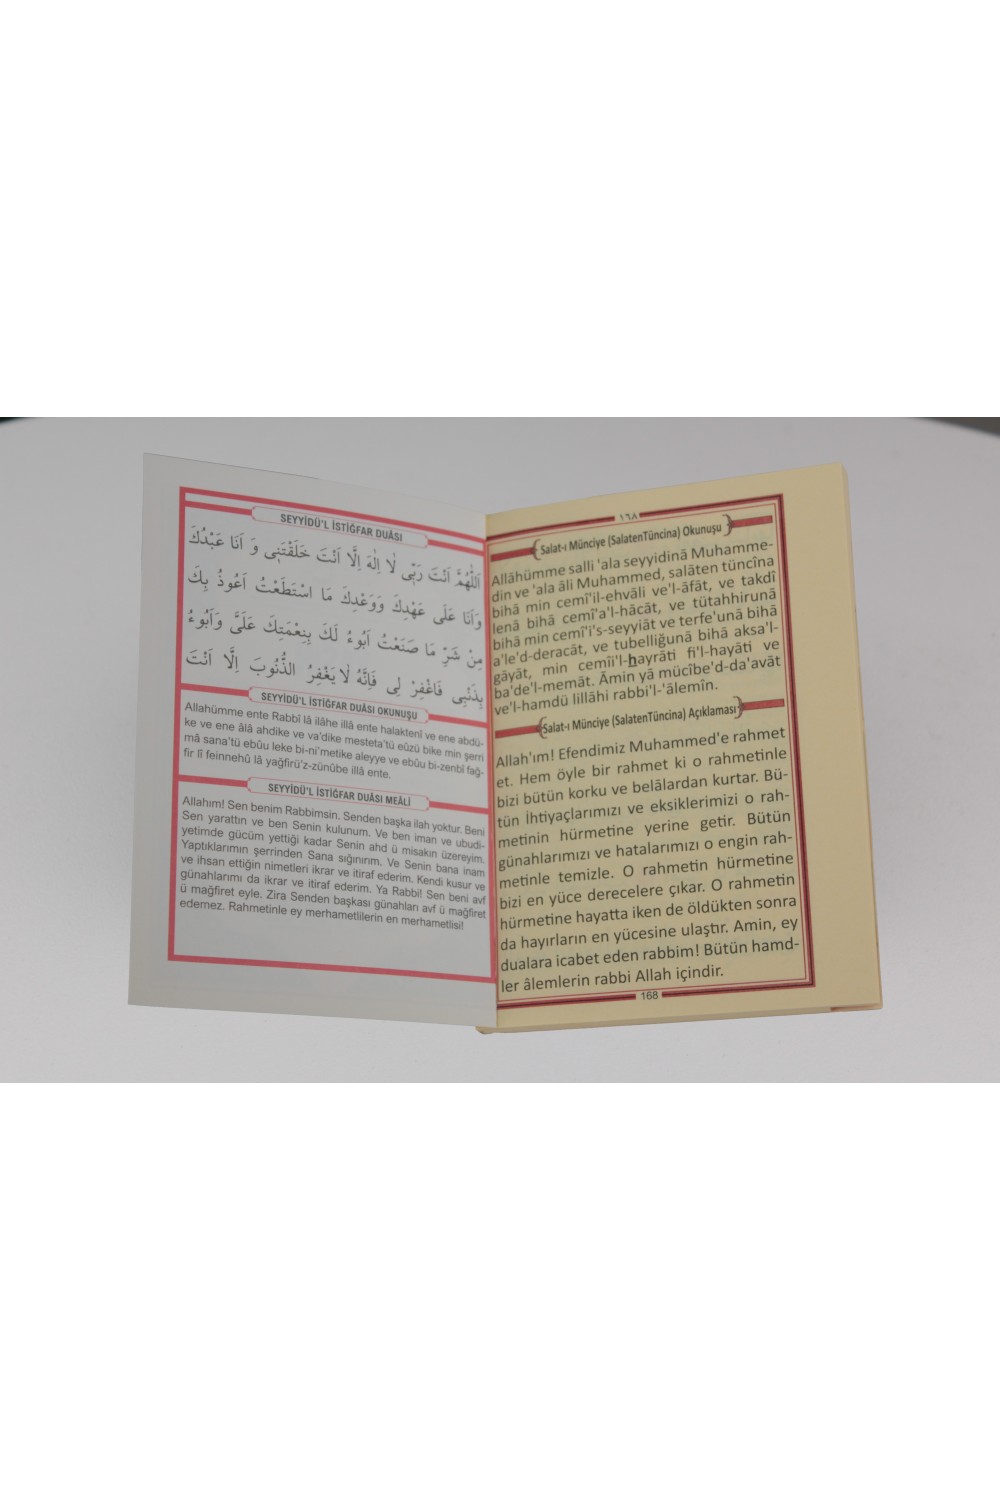 SEYYİDÜ'L İSTİĞFAR DUÂSI
اَللّٰهُمَّ اَنْتَ رَبّٖى لَا اِلٰهَ اِلَّا اَنْتَ خَلَقْتَنٖى وَ اَنَا عَبْدُكَ
وَاَنَا عَلَى عَهْدِكَ وَوَعْدِكَ مَا اسْتَطَعْتُ اَعُوذُ بِكَ
مِنْ شَرِّ مَا صَنَعْتُ اَبُوءُ لَكَ بِنِعْمَتِكَ عَلَىَّ وَاَبُوءُ
بِذَنْبٖى فَاغْفِرْ لٖى فَاِنَّهُ لَا يَغْفِرُ الذُّنُوبَ اِلَّا اَنْتَ
SEYYİDÜ'L İSTİĞFAR DUÂSI OKUNUŞU
Allahümme ente Rabbî lâ ilâhe illâ ente halaktenî ve ene abdü-
ke ve ene âlâ ahdike ve va'dike mesteta'tü eûzü bike min şerri
mâ sana'tü ebûu leke bi-ni'metike aleyye ve ebûu bi-zenbî fağ-
fir lî feinnehû lâ yağfirü'z-zünûbe illâ ente.
SEYYİDÜ'L İSTİĞFAR DUÂSI MEÂLİ
Allahım! Sen benim Rabbimsin. Senden başka ilah yoktur. Beni
Sen yarattın ve ben Senin kulunum. Ve ben iman ve ubudi-
yetimde gücüm yettiği kadar Senin ahd ü misakın üzereyim.
Yaptıklarımın şerrinden Sana sığınırım. Ve Senin bana inam
ve ihsan ettiğin nimetleri ikrar ve itiraf ederim. Kendi kusur ve
günahlarımı da ikrar ve itiraf ederim. Ya Rabbi! Sen beni avf
ü mağfiret eyle. Zira Senden başkası günahları avf ü mağfiret
edemez. Rahmetinle ey merhametlilerin en merhametlisi!
١٦٨
Salat-ı Münciye (SalatenTüncina) Okunuşu
Allāhümme salli 'ala seyyidinā Muhamme-
din ve 'ala āli Muhammed, salāten tüncîna
bihā min cemî'il-ehvāli ve'l-āfāt, ve takdî
lenā bihā cemî'a'l-hācāt, ve tütahhirunā
bihā min cemî'i's-seyyiāt ve terfe'unā bihā
a'le'd-deracāt, ve tubelliğunā bihā aksa'l-
gāyāt, min cemîi'l-hayrāti fi'l-hayāti ve
ba'de'l-memāt. Āmin yā mücîbe'd-da'avāt
ve'l-hamdü lillāhi rabbi'l-'ālemîn.
Salat-ı Münciye (SalatenTüncina) Açıklaması
Allah'ım! Efendimiz Muhammed'e rahmet
et. Hem öyle bir rahmet ki o rahmetinle
bizi bütün korku ve belâlardan kurtar. Bü-
tün İhtiyaçlarımızı ve eksiklerimizi o rah-
metinin hürmetine yerine getir. Bütün
günahlarımızı ve hatalarımızı o engin rah-
metinle temizle. O rahmetin hürmetine
bizi en yüce derecelere çıkar. O rahmetin
hürmetine hayatta iken de öldükten sonra
da hayırların en yücesine ulaştır. Amin, ey
dualara icabet eden rabbim! Bütün hamd-
ler âlemlerin rabbi Allah içindir.
168